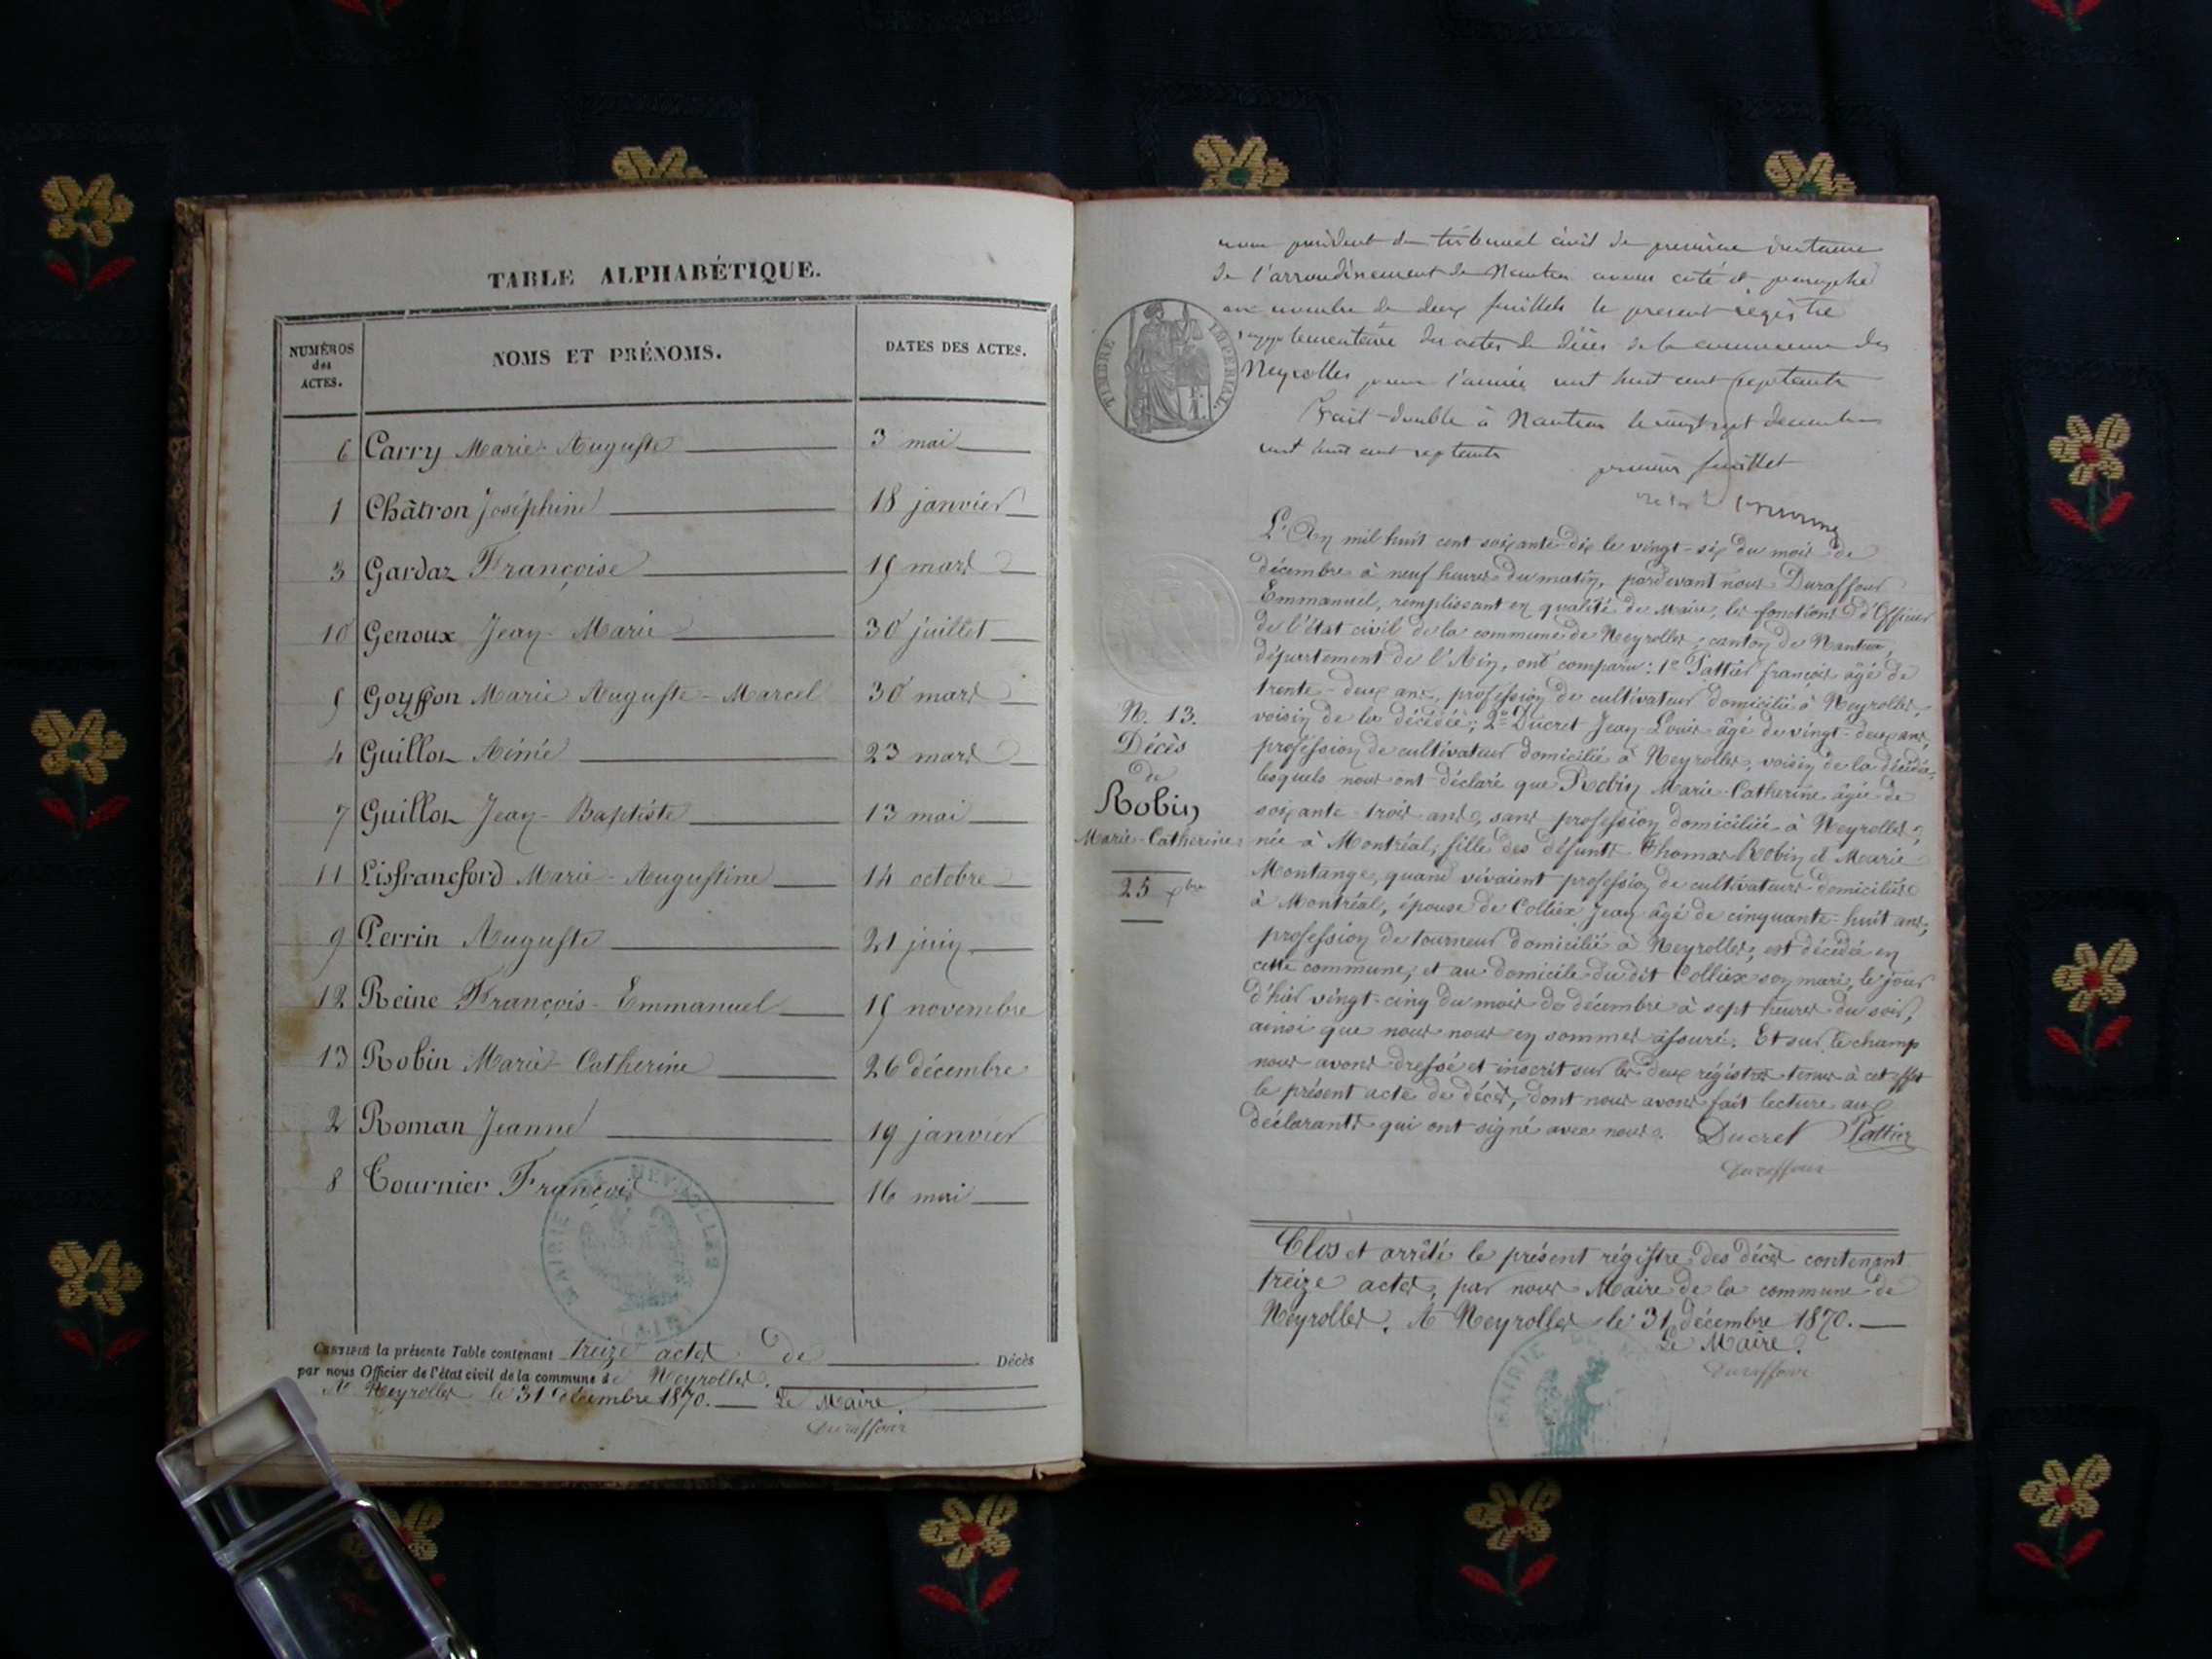 TABLE ALPHABÉTIQUE.
NUMÉROS des ACTES. NOMS ET PRÉNOMS. DATES DES ACTES.
6 Carry Marie-Auguste 3 mai
1 Châtron Joséphine 18 janvier
3 Gardaz Françoise 15 mars
10 Genoux Jean-Marie 30 juillet
5 Goyffon Marie Auguste-Marcel 30 mars
4 Guillon Aimé 23 mars
7 Guillon Jean-Baptiste 13 mai
11 Lisfranc Marie-Augustine 14 octobre
9 Perrin Auguste 21 juin
12 Reine François-Emmanuel 15 novembre
13 Robin Marie-Catherine 26 décembre
2 Roman Jeanne 19 janvier
8 Tournier François 16 mai
MAIRIE DE NEYROLLES (AIN)
CERTIFIÉ la présente Table contenant treize actes de Décès
par nous Officier de l'état civil de la commune de Neyrolles.
A Neyrolles le 31 décembre 1870. Le Maire.
Duraffour
nous président du tribunal civil de première instance
de l'arrondissement de Nantua avons coté et paraphé
au nombre de deux feuillets le présent registre
supplémentaire des actes de décès de la commune des
Neyrolles pour l'année mil huit cent septante
Fait double à Nantua le vingt sept décembre
mil huit cent septante
premier feuillet
TIMBRE IMPÉRIAL.
L'An mil huit cent soixante-dix le vingt-six du mois de
décembre à neuf heures du matin, pardevant nous Duraffour
Emmanuel, remplissant en qualité de Maire, les fonctions d'Officier
de l'état civil de la commune de Neyrolles, canton de Nantua,
département de l'Ain, ont comparu: 1º Pattier françois âgé de
trente-deux ans, profession de cultivateur domicilié à Neyrolles,
voisin de la décédée; 2º Ducret Jean-Louis âgé de vingt-deux ans,
profession de cultivateur domicilié à Neyrolles, voisin de la décédée,
lesquels nous ont déclaré que Robin Marie-Catherine âgée de
soixante-trois ans, sans profession domiciliée à Neyrolles,
née à Montréal, fille des défunts Thomas Robin et Marie
Montange, quand vivaient profession de cultivateurs domiciliés
à Montréal, épouse de Colliex Jean âgé de cinquante-huit ans,
profession de tourneur domicilié à Neyrolles, est décédée en
cette commune, et au domicile du dit Colliex son mari, le jour
d'hier vingt-cinq du mois de décembre à sept heures du soir,
ainsi que nous nous en sommes assuré. Et sur le champ
nous avons dressé et inscrit sur les deux régistres tenus à cet effet
le présent acte de décès, dont nous avons fait lecture aux
déclarants qui ont signé avec nous. Ducret Pattier
Duraffour
N. 13.
Décès
de
Robin
Marie-Catherine
25 Xbre
Clos et arrêté le présent régistre des décès contenant
treize actes, par nous Maire de la commune de
Neyrolles. A Neyrolles le 31 décembre 1870.
Le Maire.
Duraffour
MAIRIE